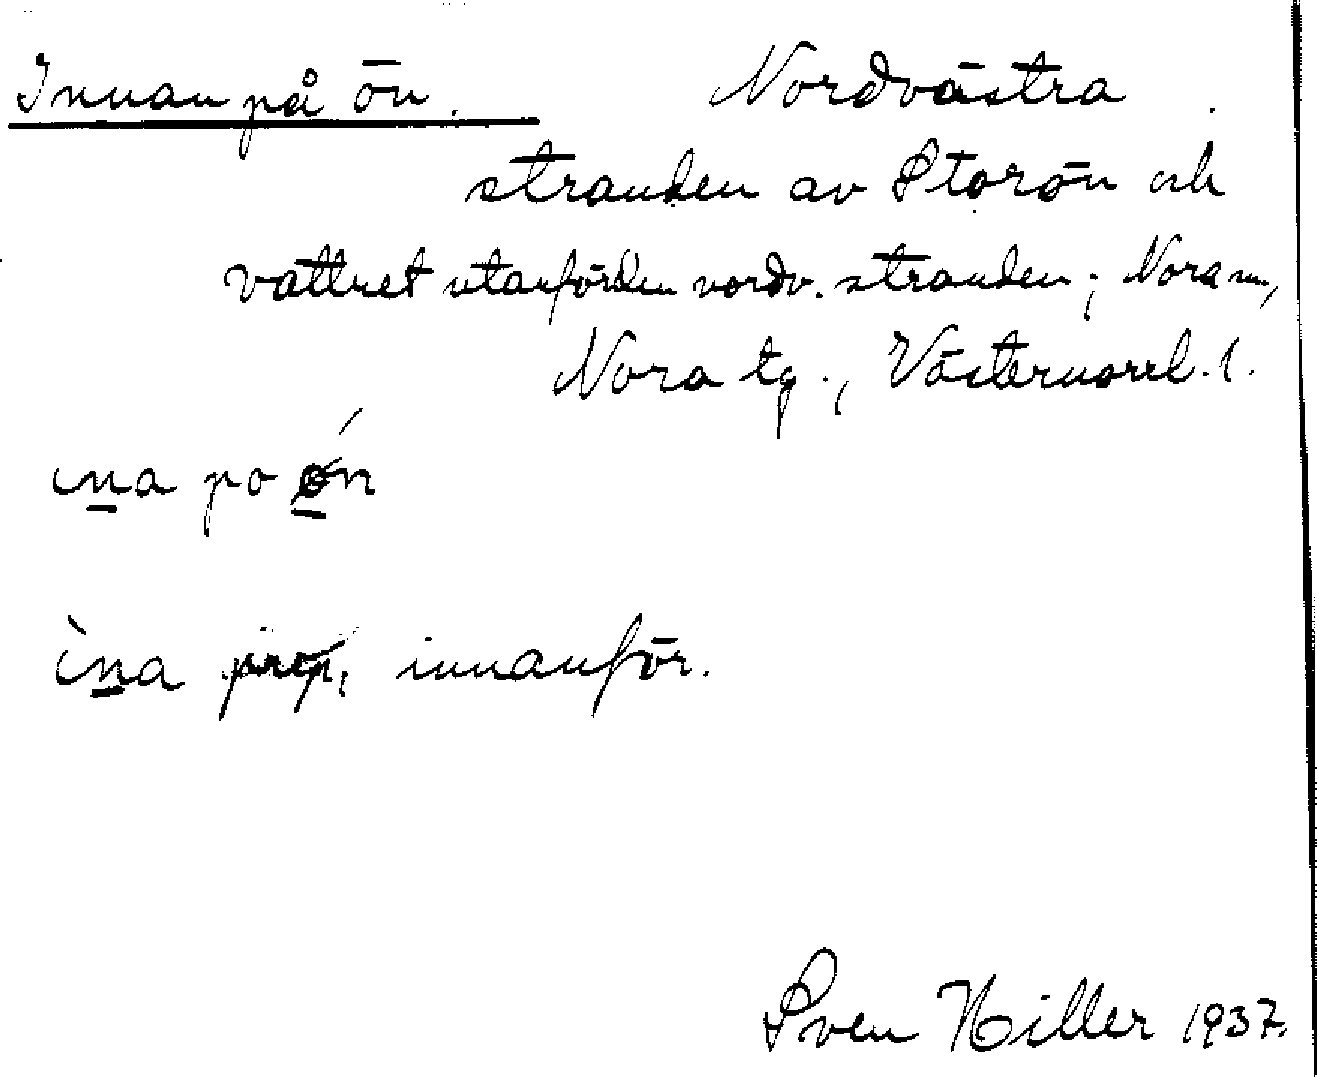 Innan på ön. Nordvästra
stranden av Storön och
vattnet utanför den nordv. stranden; Nora sn,
Nora tg., Västernorrl. l.
ina po øn
ìna prep, innanför.
Sven Hiller 1937.